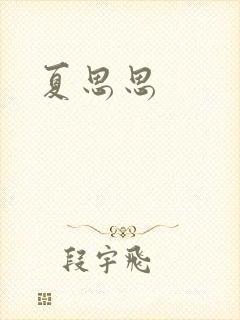 夏思思
段宇飛